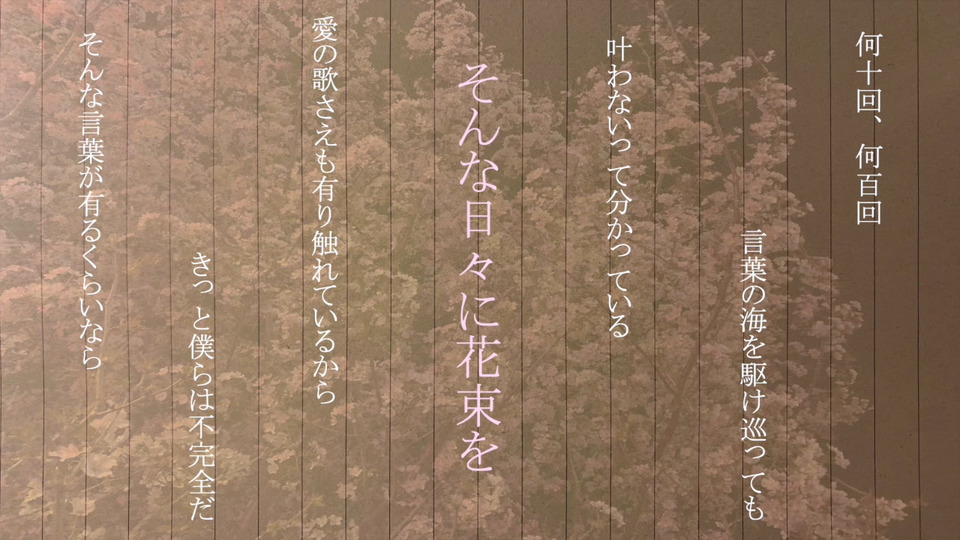 何十回、何百回
言葉の海を駆け巡っても
叶わないって分かっている
そんな日々に花束を
愛の歌さえも有り触れているから
きっと僕らは不完全だ
そんな言葉が有るくらいなら